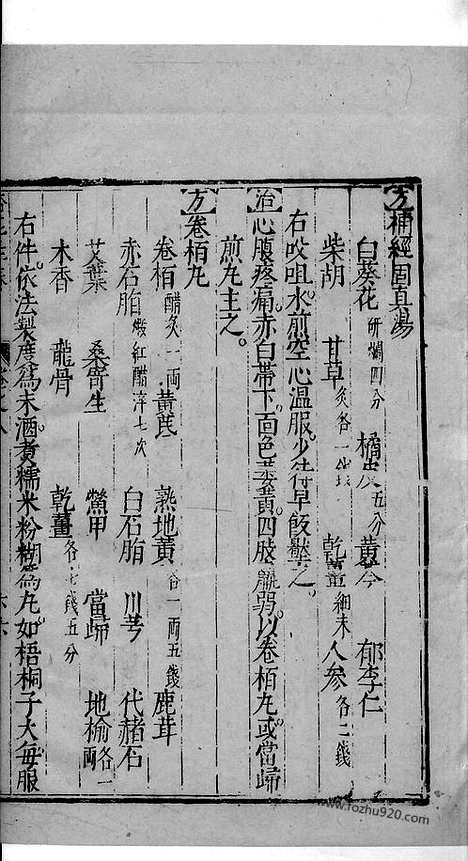 【方】補經固真湯
白葵花研爛四分 橘皮五分 黃芩 郁李仁
柴胡 甘草炙各一錢 乾薑細末 人參各二錢
右㕮咀水煎空心溫服少待早飯壓之
【治】心腹疼痛赤白帶下面色萎黃四肢羸弱以卷栢丸或當歸
煎丸主之。
【方】卷栢丸
卷栢醋炙一両 黃芪 熟地黃各一両五錢 鹿茸
赤石脂煅紅醋淬七次 白石脂 川芎 代赭石
艾葉 桑寄生 鱉甲 當歸 地榆各一両
木香 龍骨 乾薑各七錢五分
右件依法製度爲末酒煮糯米粉糊爲丸如梧桐子大每服
www.fozhu920.com